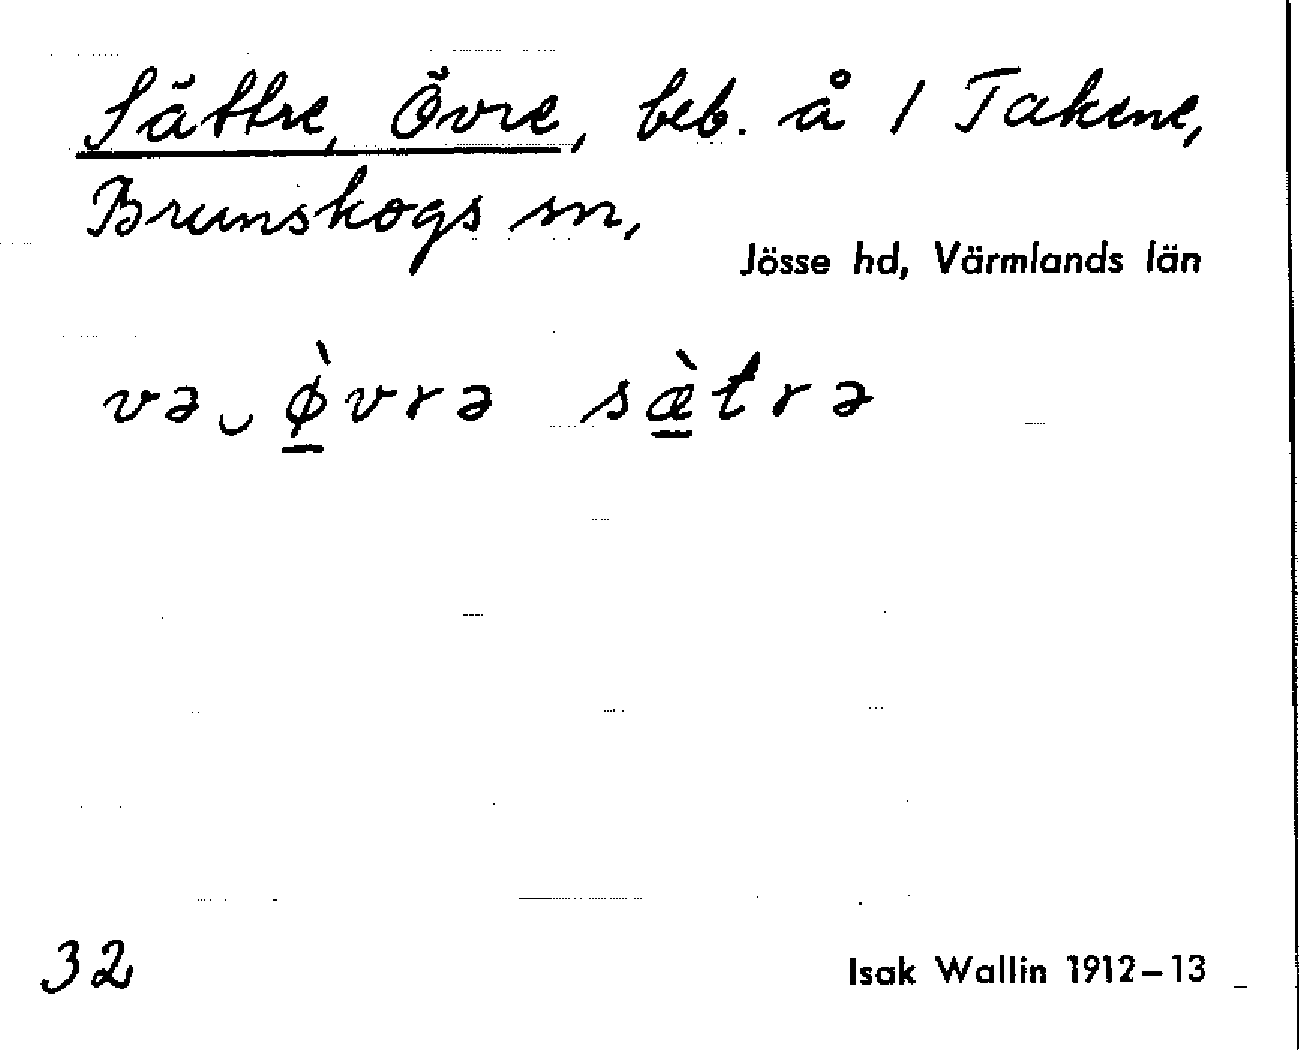 Sättre, Övre, beb. å 1 Takene,
Brunskogs sn,
Jösse hd, Värmlands län
və‿ø̀vrə sæ̀trə
32
Isak Wallin 1912–13